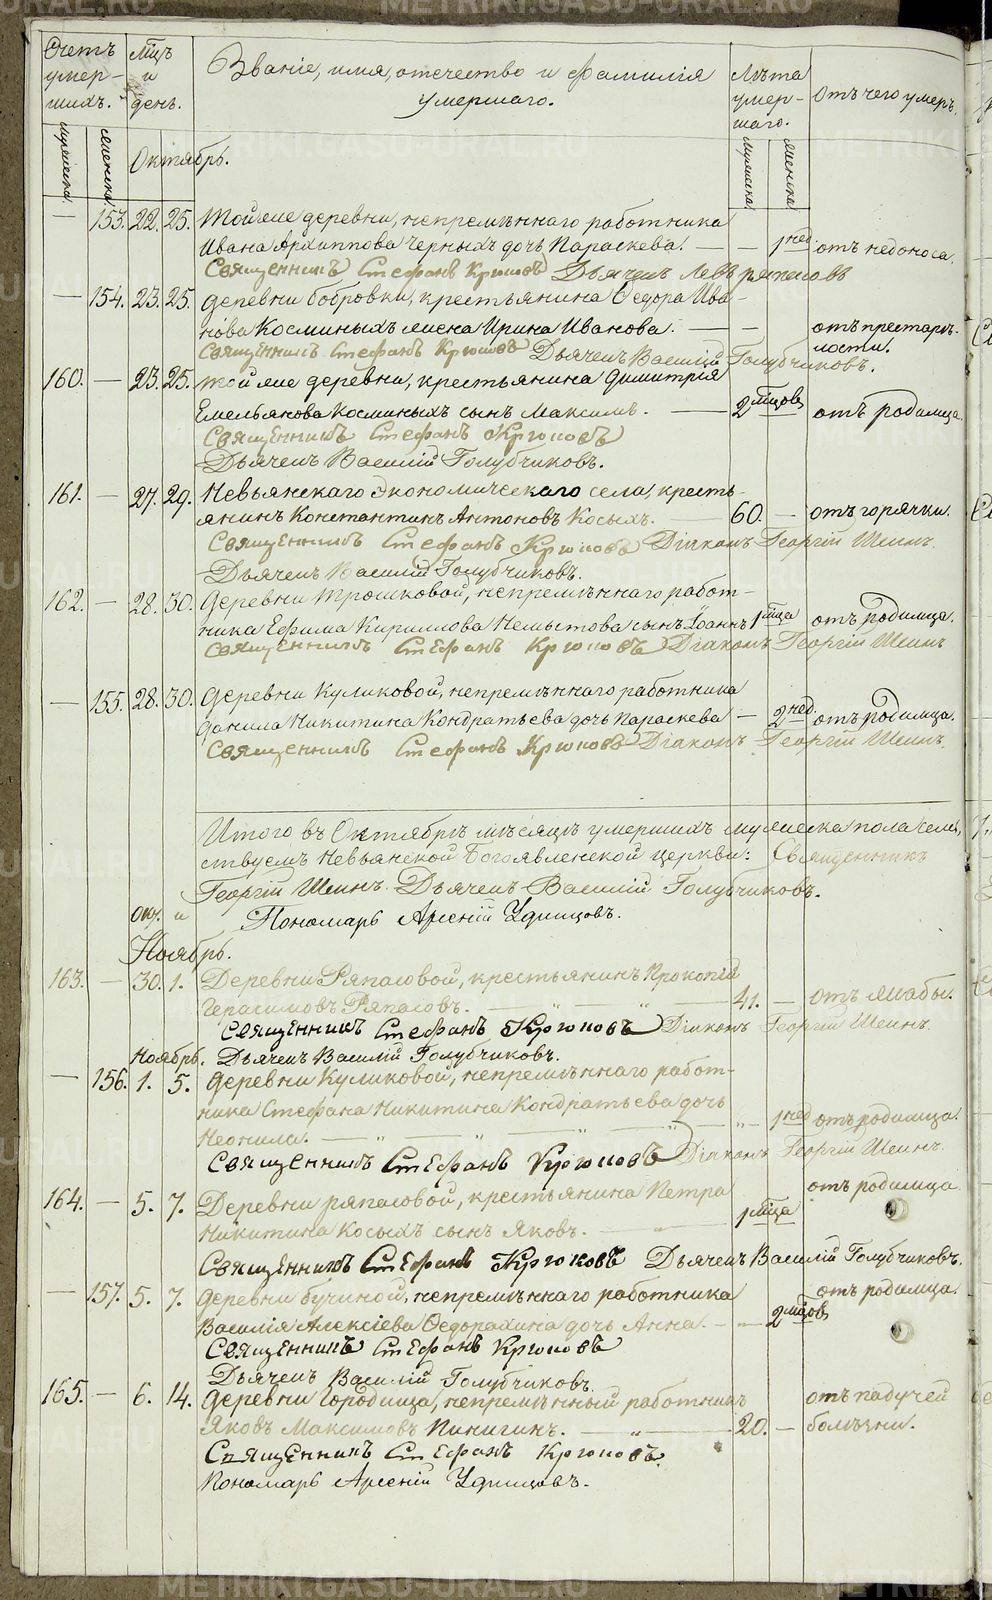 Счетъ умер-шихъ.
Мѣцъ и день.
Званіе, имя, отечество и фамилія умершаго.
Лѣта умер-шаго.
Отъ чего умеръ.
мужеска.
женска.
мужеска
женска
Октябрь.
— 153. 22. 25. Той же деревни, непремѣннаго работника
Ивана Архиппова Черныхъ дочь Параскева. — — 1 нед отъ недоноса.
Священникъ Стефанъ Крюковъ Дьячекъ Левъ
— 154. 23. 25. Деревни Бобровки, крестьянина Ѳедора Ива-
нова Косминыхъ жена Ирина Иванова. — — отъ престарѣ-
лости.
Священникъ Стефанъ Крюковъ Дьячекъ Василій Голубчиковъ.
160. — 23. 25. Той же деревни, крестьянина Димитрія
Емельянова Косминыхъ сынъ Максимъ. — 2 мѣцовъ отъ родимца.
Священникъ Стефанъ Крюковъ
Дьячекъ Василій Голубчиковъ.
161. — 27. 29. Невьянскаго Экономическаго села, кресть-
янинъ Константинъ Антоновъ Косыхъ. 60. — отъ горячки.
Священникъ Стефанъ Крюковъ Діаконъ Георгій Шеинъ.
Дьячекъ Василій Голубчиковъ.
162. — 28. 30. Деревни Трошковой, непремѣннаго работ-
ника Ефима Кириллова Немытова сынъ Іоаннъ 1 мѣца отъ родимца.
Священникъ Стефанъ Крюковъ Діаконъ Георгій Шеинъ
— 155. 28. 30. Деревни Куликовой, непремѣннаго работника
Данила Никитина Кондратьева дочь Параскева — 2 нед. отъ родимца.
Священникъ Стефанъ Крюковъ Діаконъ Георгій Шеинъ.
Итого въ Октябрѣ мѣсяцѣ умершихъ мужеска пола
ствуемъ Невьянской Богоявленской церкви: Священникъ
Георгій Шеинъ. Дьячекъ Василій Голубчиковъ.
Окт. и Пономарь Арсеній Удинцовъ.
Ноябрь.
163. — 30. 1. Деревни Ряпасовой, крестьянинъ Прокопій
Герасимовъ Ряпасовъ. — " — " — 41. — отъ жабы.
Священникъ Стефанъ Крюковъ Діаконъ Георгій Шеинъ.
Ноябрь. Дьячекъ Василій Голубчиковъ.
— 156. 1. 5. Деревни Куликовой, непремѣннаго работ-
ника Стефана Никитина Кондратьева дочь
Неонила. — " — " — " — " — 1 нед отъ родимца.
Священникъ Стефанъ Крюковъ Діаконъ Георгій Шеинъ.
164. — 5. 7. Деревни Ряпасовой, крестьянина Петра отъ родимца
Никитина Косыхъ сынъ Яковъ. — " — 1 мѣца
Священникъ Стефанъ Крюковъ Дьячекъ Василій Голубчиковъ.
— 157. 5. 7. Деревни Бучиной, непремѣннаго работника отъ родимца.
Василія Алексіева Ѳедорахина дочь Анна. — " — 2 мѣцов
Священникъ Стефанъ Крюковъ
Дьячекъ Василій Голубчиковъ.
165. — 6. 14. Деревни Городища, непремѣнный работникъ отъ падучей
Яковъ Максимовъ Пинигинъ. — " — 20. — болѣзни.
Священникъ Стефанъ Крюковъ.
Пономарь Арсеній Удинцовъ.
METRIKI.GASU-URAL.RU